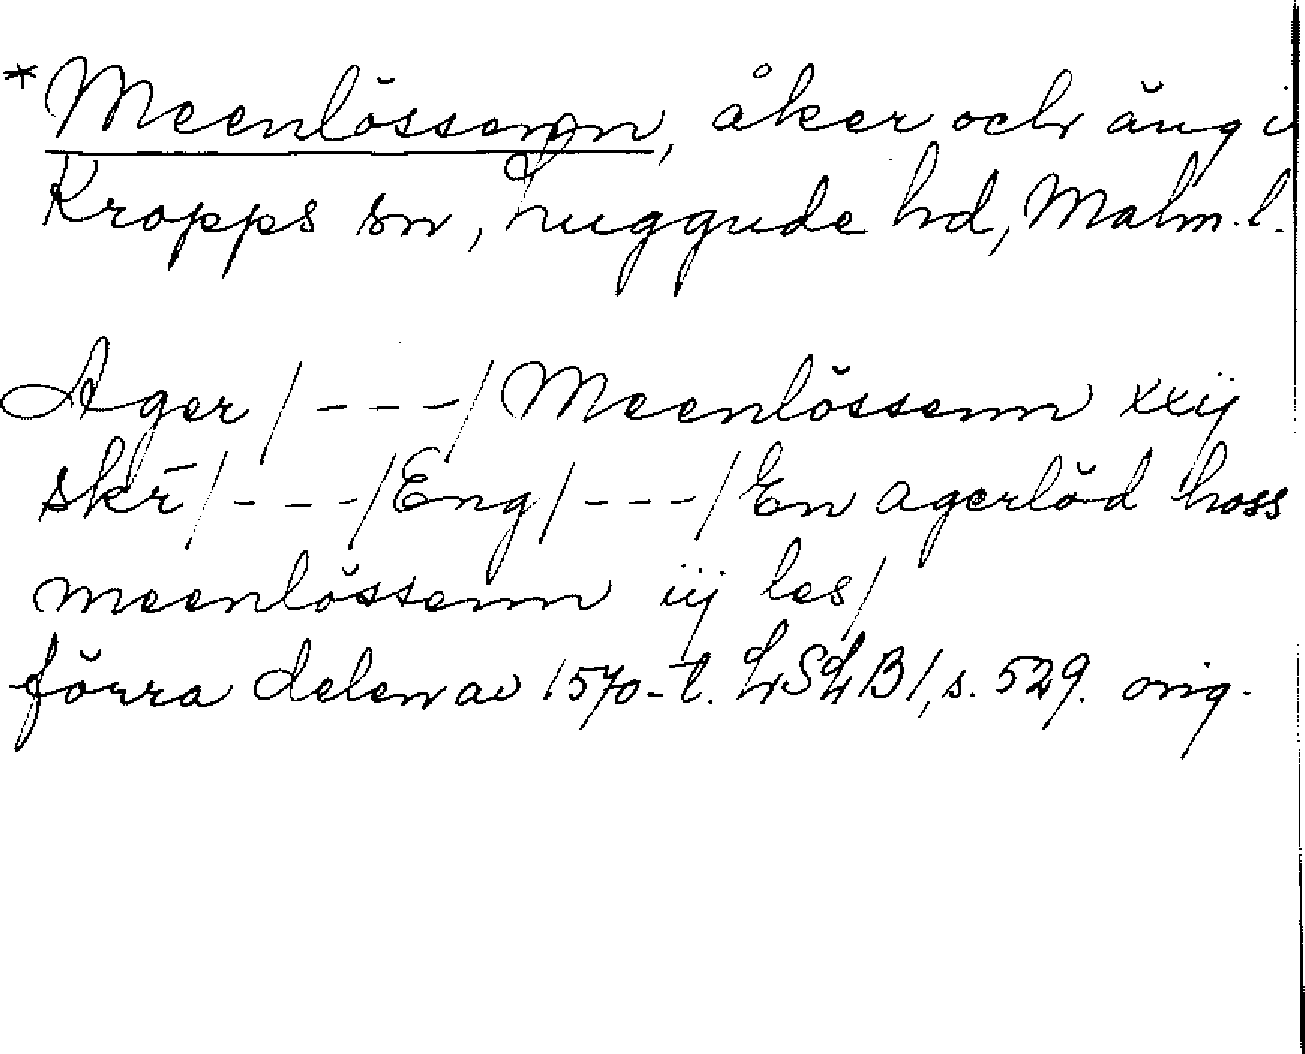 *Meenlössenn, åker och äng i
Kropps sn, Luggude hd, Malm.l.
Ager /---/ Meenlössenn xxij
skr̄ /---/ Eng /---/ En agerlöd hoss
meenlössenn iij les/
förra delen av 1570-t. LSLB1, s. 529. orig.